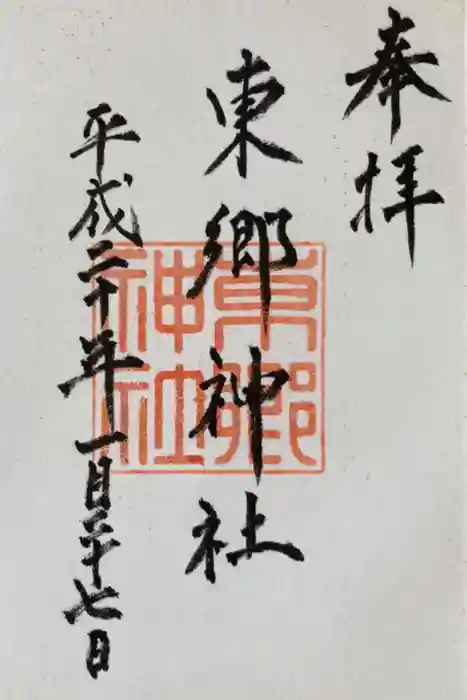 奉拝
東郷神社
平成二十年一月二十七日
東郷
神社